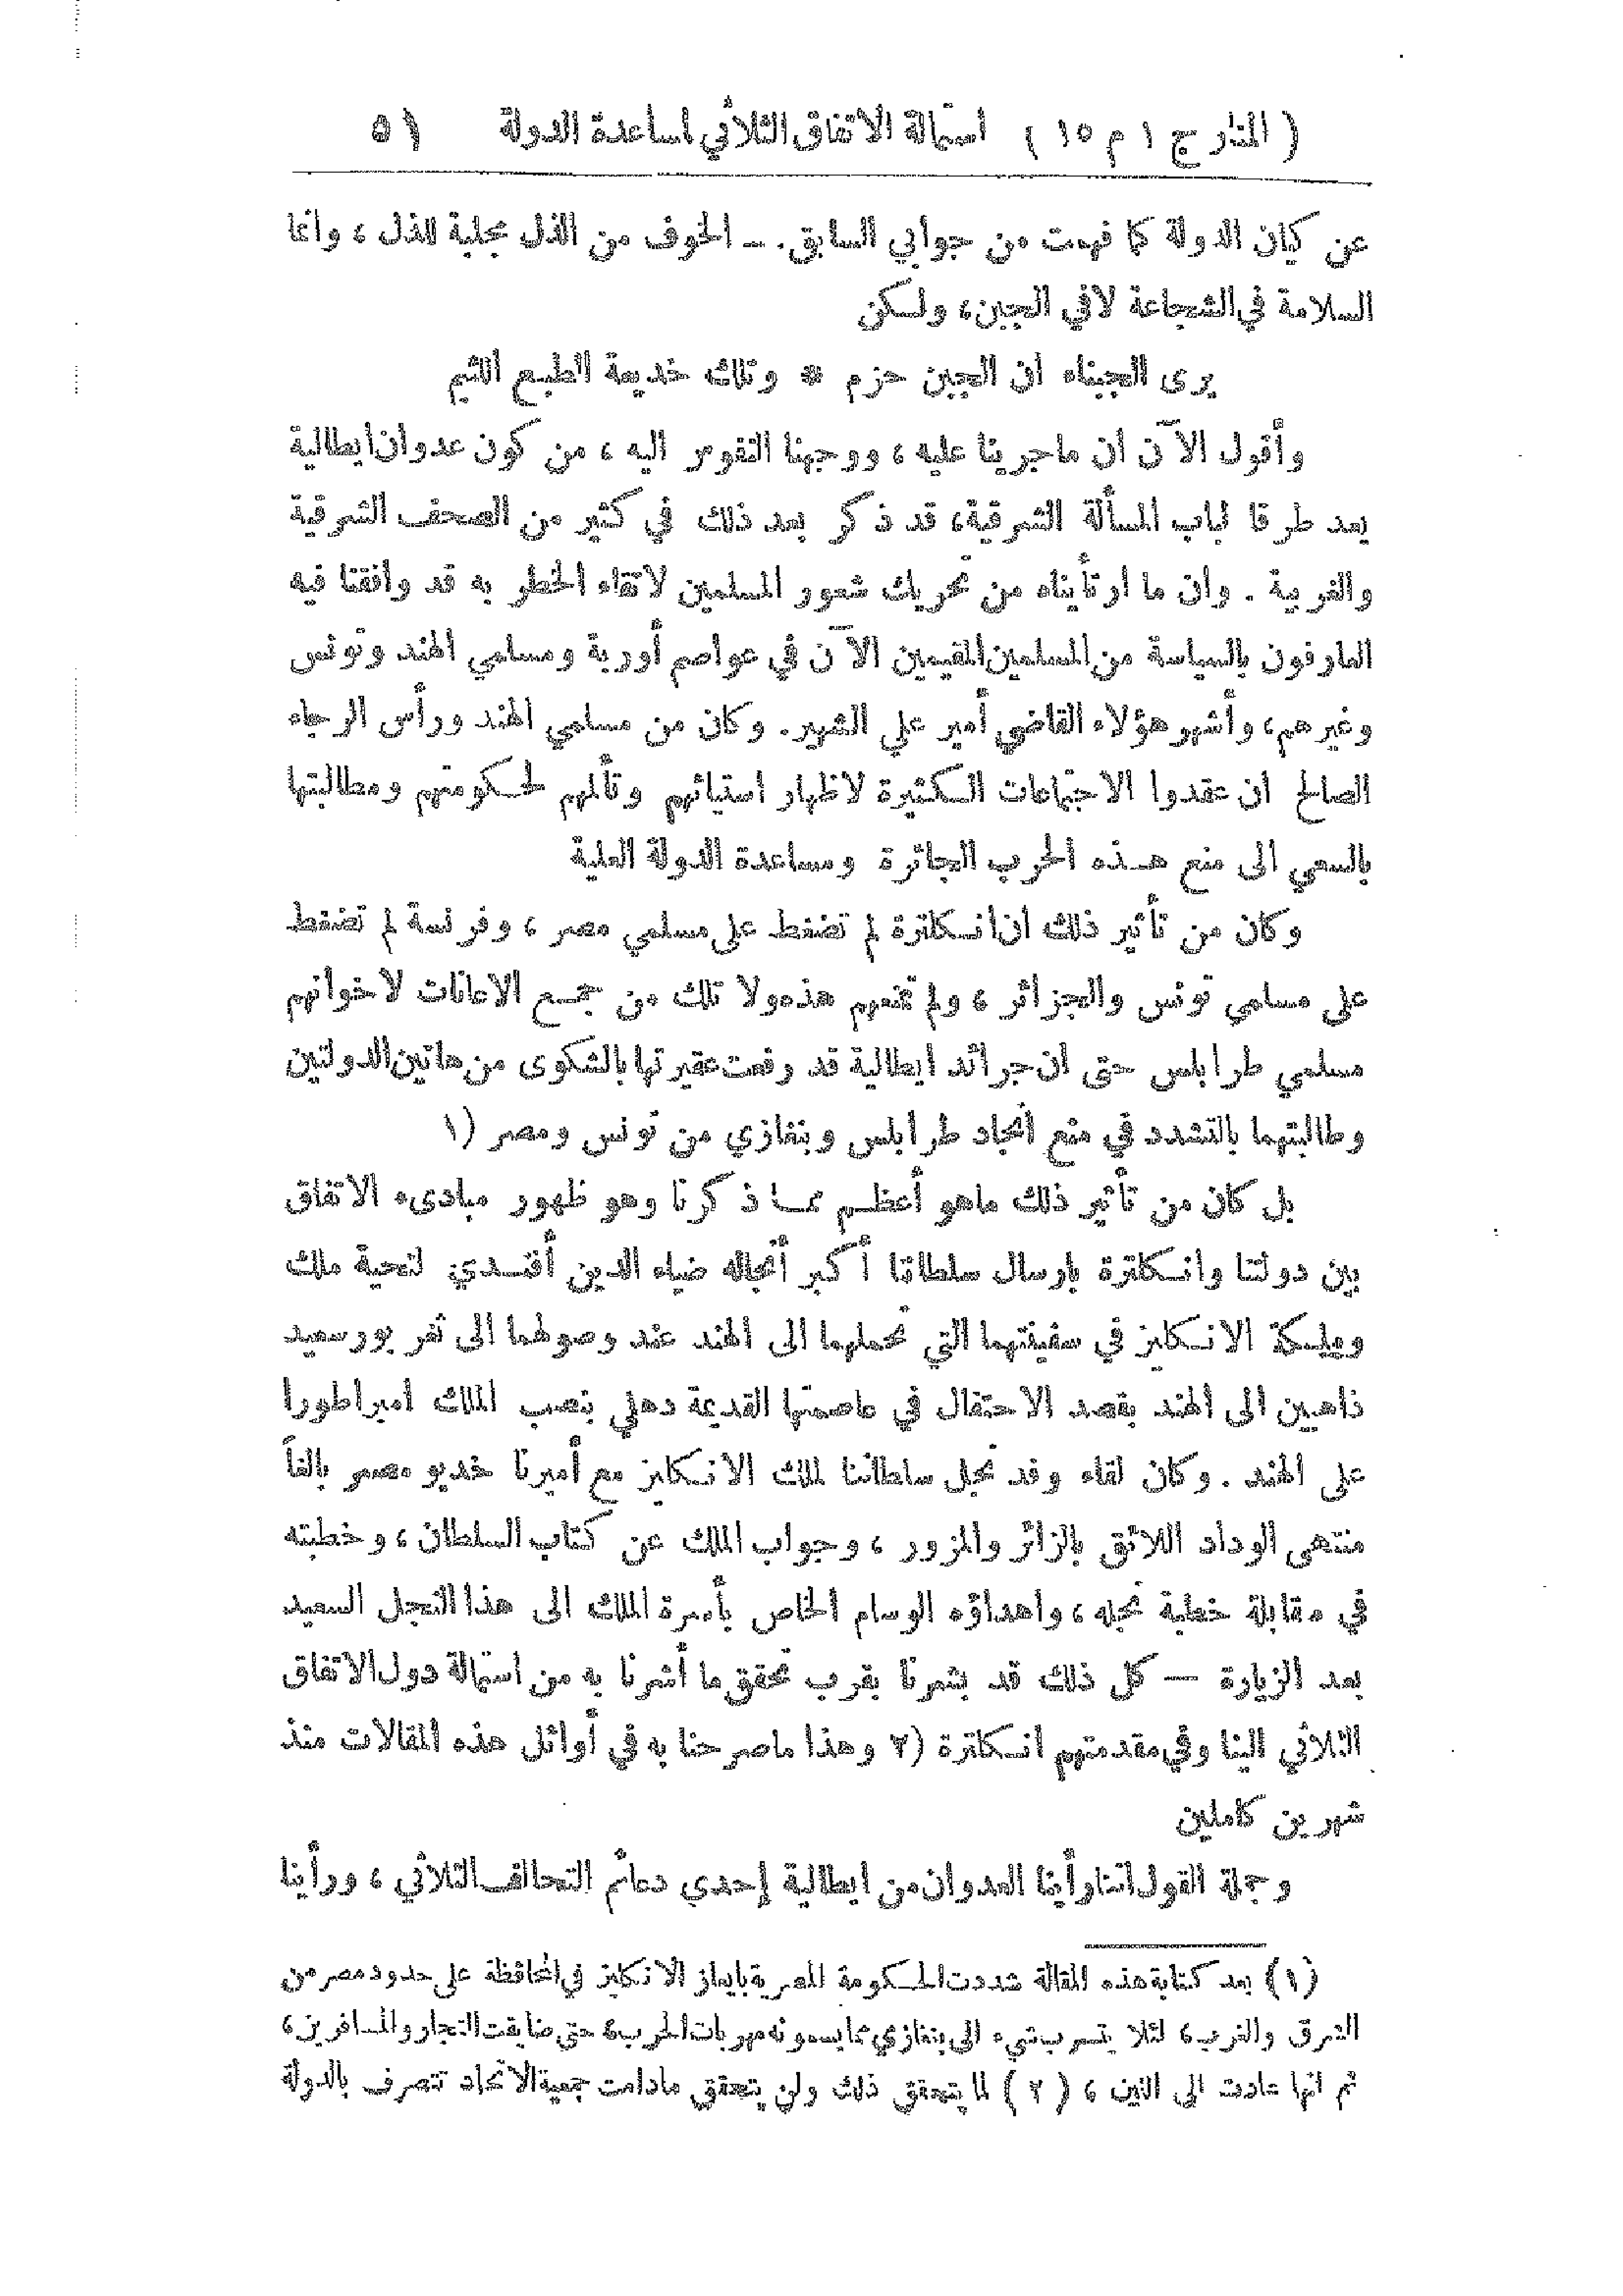 ( المنار ج ١ م ١٥ ) استمالة الاتفاق الثلاثي لمساعدة الدولة ٥١
عن كيان الدولة كما فهمت من جوابي السابق. ــ الخوف من الذل مجلبة للذل ، وانما
السلامة في الشجاعة لافي الجبن، ولكن
يرى الجبناء ان الجبن حزم * وتلك خديعة الطبع اللئيم
وأقول الآن ان ماجرينا عليه ، ووجهنا النفوس اليه ، من كون عدوان ايطالية
يعد طرقا لباب المسألة الشرقية، قد ذكر بعد ذلك في كثير من الصحف الشرقية
والغربية . وان ما ارتأيناه من تحريك شعور المسلمين لاتقاء الخطر به قد وافقنا فيه
العارفون بالسياسة من المسلمين المقيمين الآن في عواصم أوربة ومسلمي الهند وتونس
وغيرهم، وأشهر هؤلاء القاضي أمير علي الشهير. وكان من مسلمي الهند ورأس الرجاء
الصالح ان عقدوا الاجتماعات الكثيرة لاظهار استيائهم وتألمهم لحكومتهم ومطالبتها
بالسعي الى منع هذه الحرب الجائرة ومساعدة الدولة العلية
وكان من تأثير ذلك ان انكلترة لم تضغط على مسلمي مصر ، وفرنسة لم تضغط
على مسلمي تونس والجزائر ، ولم تمنعهم هذه ولا تلك من جمع الاعانات لاخوانهم
مسلمي طرابلس حتى ان جرائد ايطالية قد رفعت عقيرتها بالشكوى من هاتين الدولتين
وطالبتهما بالتشدد في منع انجاد طرابلس وبنغازي من تونس ومصر (١
بل كان من تأثير ذلك ماهو أعظم مما ذكرنا وهو ظهور مبادىء الاتفاق
بين دولتنا وانكلترة بارسال سلطاننا أكبر أنجاله ضياء الدين أفندي لتحية ملك
وملكة الانكليز في سفينتهما التي تحملهما الى الهند عند وصولهما الى ثغر بورسعيد
ذاهبين الى الهند بقصد الاحتفال في عاصمتها القديمة دهلي بنصب الملك امبراطورا
على الهند . وكان لقاء وفد نجل سلطاننا لملك الانكليز مع أميرنا خديو مصر بالغاً
منتهى الوداد اللائق بالزائر والمزور ، وجواب الملك عن كتاب السلطان ، وخطبته
في مقابلة خطبة نجله ، واهداؤه الوسام الخاص بأسرة الملك الى هذا النجل السعيد
بعد الزيارة — كل ذلك قد بشرنا بقرب تحقق ما أشرنا به من استمالة دول الاتفاق
الثلاثي الينا وفي مقدمتهم انكلترة (٢ وهذا ماصرحنا به في أوائل هذه المقالات منذ
شهرين كاملين
وجملة القول اننا رأينا العدوان من ايطالية إحدى دعائم التحالف الثلاثي ، ورأينا
(١) بعد كتابة هذه المقالة شددت الحكومة المصرية بايعاز الانكليز في المحافظة على حدود مصر من
الشرق والغرب، لئلا يتسرب شيء الى بنغازي مما يسمونه مهربات الحرب، حتى ضايقت التجار والمسافرين،
ثم انها عادت الى اللين ، (٢) لما يتحقق ذلك ولن يتحقق مادامت جمعية الاتحاد تتصرف بالدولة